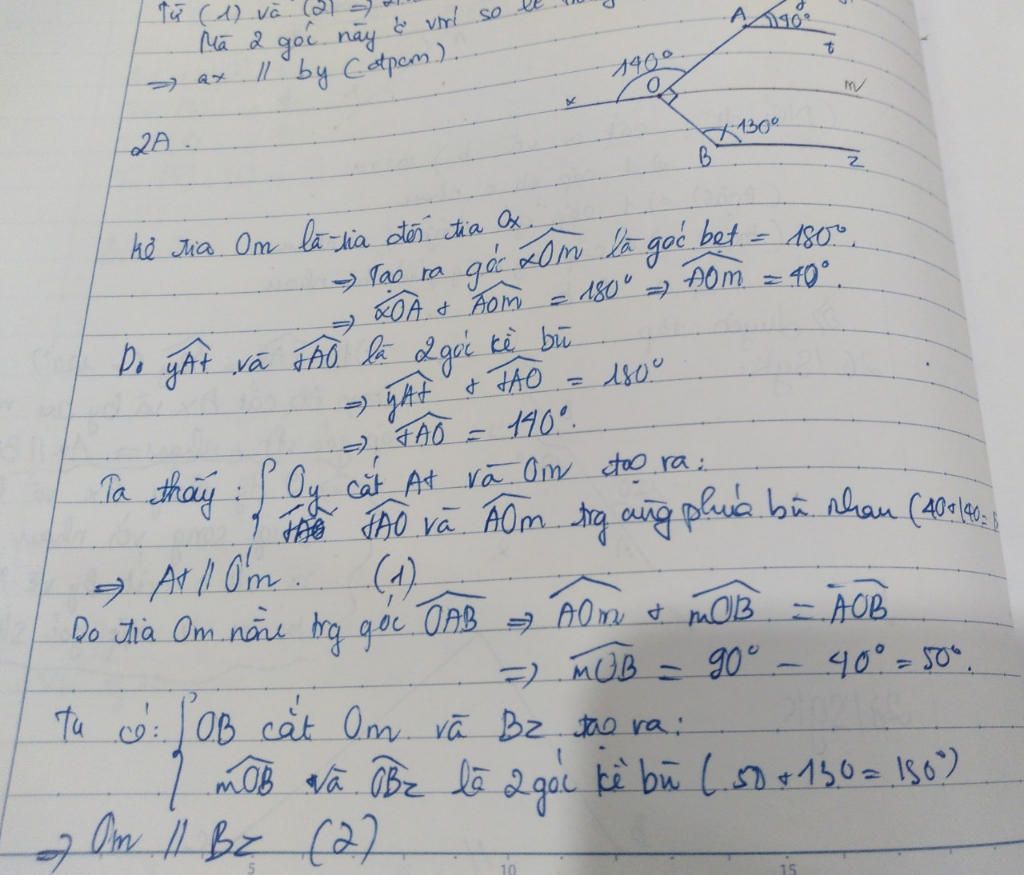 Từ (1) và (2) =>
Mà 2 góc này ở vtrí so le
=> ax // by (đpcm).
A
40°
t
140°
O
x
m
130°
B
z
2A.
Kẻ tia Om là tia đối tia Ox.
=> Tạo ra góc xOm là góc bẹt = 180°.
=> xOA + AOm = 180° => AOm = 40°.
Do yAt và tAO là 2 góc kề bù
=> yAt + tAO = 180°
=> tAO = 140°.
Ta thấy: { Oy cắt At và Om tạo ra:
tAO và AOm trg cùng phía bù nhau (40+140=
=> At // Om. (1)
Do tia Om nằm trg góc OAB => AOm + mOB = AOB
=> mOB = 90° - 40° = 50°.
Ta có: { OB cắt Om và Bz tạo ra:
mOB và OBz là 2 góc kề bù (50+130=180°)
=> Om // Bz (2)
5
10
15